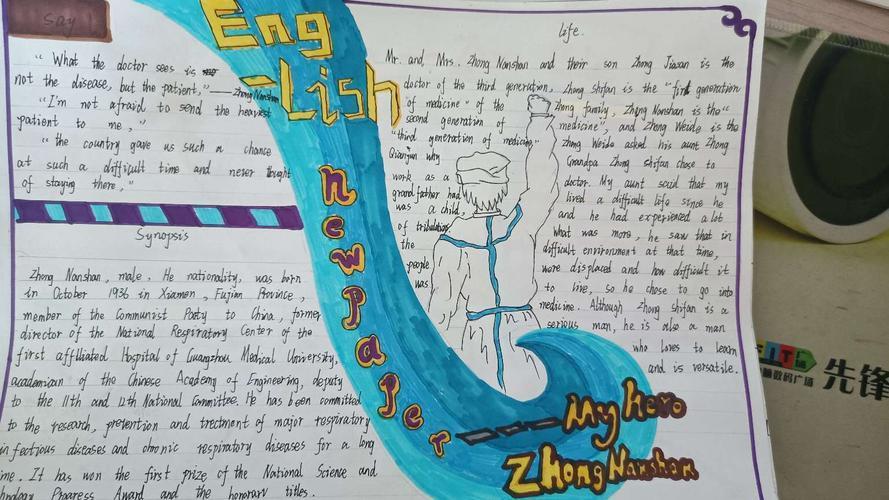 Say
"What the doctor sees is
not the disease, but the patient," —— Zhong Nanshan
"I'm not afraid to send the heaviest
patient to me,"
"the country gave us such a chance
at such a difficult time and never thought
of staying there,"
Synopsis
Zhong Nanshan, male. He nationality, was born
in October 1936 in Xiamen, Fujian Province,
member of the Communist Paety to China, former
director of the National Respiratory Center of the
first affliated Hospital of Guangzhou Medical University,
academician of the Chinese Academy of Engineering, deputy
to the 11th and 12th National Committee. He has been committed
to the research, prevention and trectment of major respiratory
infectious diseases and chronic respiratory diseases for a long
ime. It has won the first prize of the National Science and
hnology Progress Award and the honorary titles.
Eng
-Lish
newpaper
———My hero
Zhong Nanshan
life.
Mr. and Mrs. Zhong Nanshan and their son Zhong Jiwan is the
doctor of the third generation, Zhong shifan is the "first generation
of medicine" of the Zhong family, Zhong Nanshan is the "
second generation of medicine", and Zhong Weide is the
"third generation of medicine" Zhong Weide asked his aunt Zhong
Qianjun why Grandpa Zhong shifan chose to
work as a doctor. My aunt said that my
grandfather had lived a difficult life since he
was a child, and he had experienced a lot
of tribulation, what was more, he saw that in
the difficult environment at that time,
people were displaced and how difficult it
was to live, so he chose to go into
medicine. Although Zhong shifan is a
serious man, he is also a man
who loves to learn
and is versatile.
数码广场
先锋